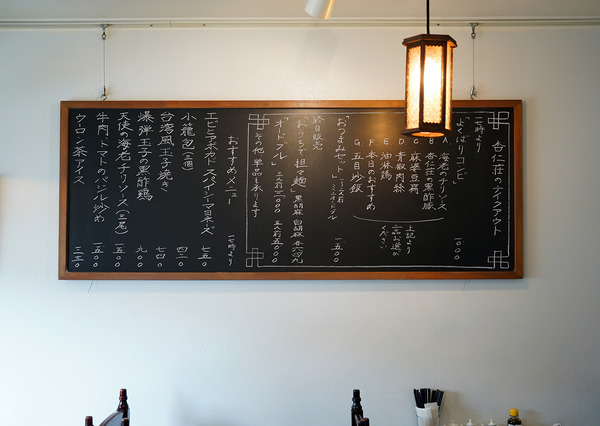 杏仁荘のテイクアウト
十七時より
よくばりコンビ 一〇〇〇
A 海老のチリソース
B 杏仁荘の黒酢豚
C 麻婆豆腐
D 青椒肉絲
E 油淋鶏
F 本日のおすすめ
G 五目炒飯
上記より
二品お選び
ください
おつまみセット 一五〇〇
終日販売
おうちで担々麺 黒胡麻 白胡麻
オードブル
その他 単品も承ります
おすすめメニュー 十七時より
エビとアボカドスイシーマヨネーズ 七五〇
小籠包(三個) 四二〇
台湾風玉子焼き 七四〇
爆弾玉子の黒酢鶏 九〇〇
天使の海老チリソース(三尾) 一五〇〇
牛肉トマトのバジル炒め 一五〇〇
ウーロン茶アイス 三三〇